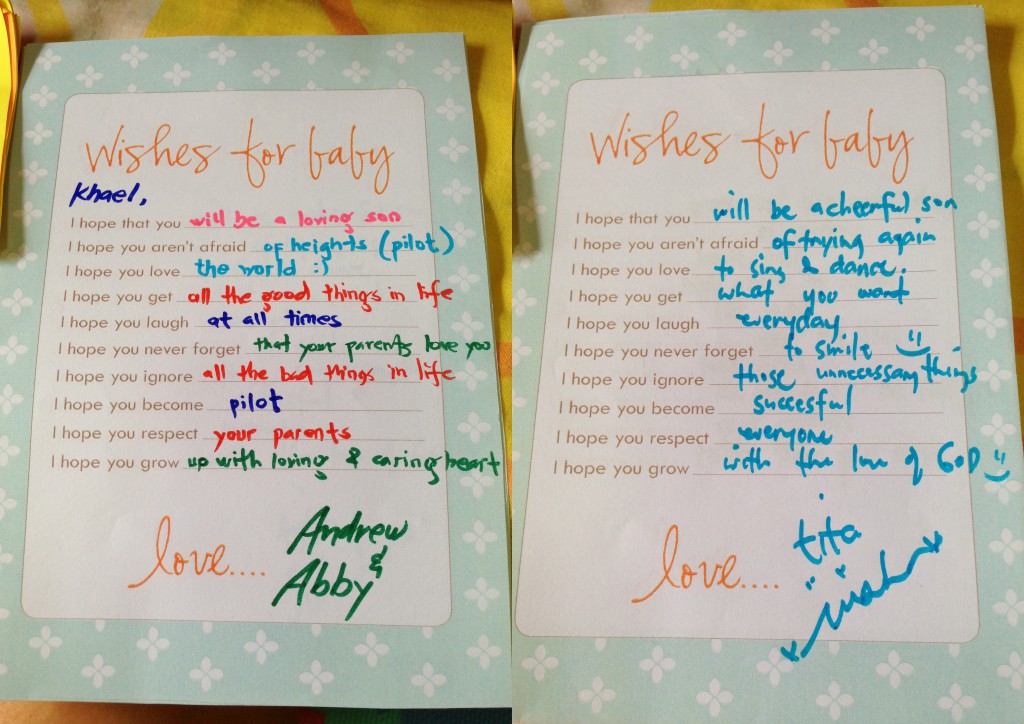 Wishes for baby
Khael,
I hope that you will be a loving son
I hope you aren't afraid of heights (pilot)
I hope you love the world :)
I hope you get all the good things in life
I hope you laugh at all times
I hope you never forget that your parents love you
I hope you ignore all the bad things in life
I hope you become pilot
I hope you respect your parents
I hope you grow up with loving & caring heart
love....
Andrew
&
Abby
Wishes for baby
I hope that you will be a cheerful son
I hope you aren't afraid of trying again
I hope you love to sing & dance.
I hope you get what you want
I hope you laugh everyday
I hope you never forget to smile
I hope you ignore those unnecessary things
I hope you become succesful
I hope you respect everyone
I hope you grow with the love of GOD
love....
tita